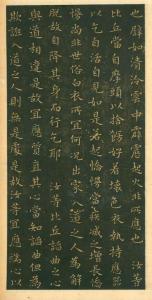 也譬如清冷雲中霹靂起火非所應也 汝等
比丘當自摩頭以捨飾好著壞色衣執持應器
以乞自活自見如是若起憍慢當疾滅之增長憍
慢尚非世俗白衣所宜何況出家入道之人為解
脫故自降其身而行乞耶 汝等比丘諂曲之心
與道相違是故宜應質直其心當知諂曲但為
欺誑入道之人則無是處是故汝等宜應端心以